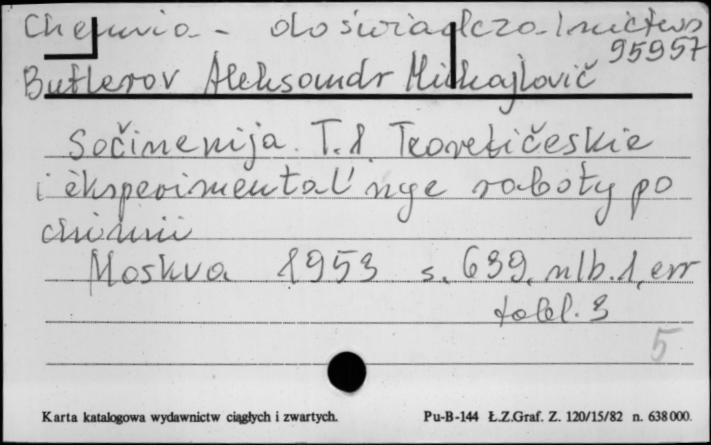 Chemia - doświadczalnictwo
95957
Butlerov Aleksandr Michajlovič
Sočinenija. T. 1. Teoretičeskie
i èksperimental'nye raboty po
chimii
Moskva 1953 s. 639, nlb. 1, err
tabl. 3
5
Karta katalogowa wydawnictw ciągłych i zwartych. Pu-B-144 Ł.Z.Graf. Z. 120/15/82 n. 638000.